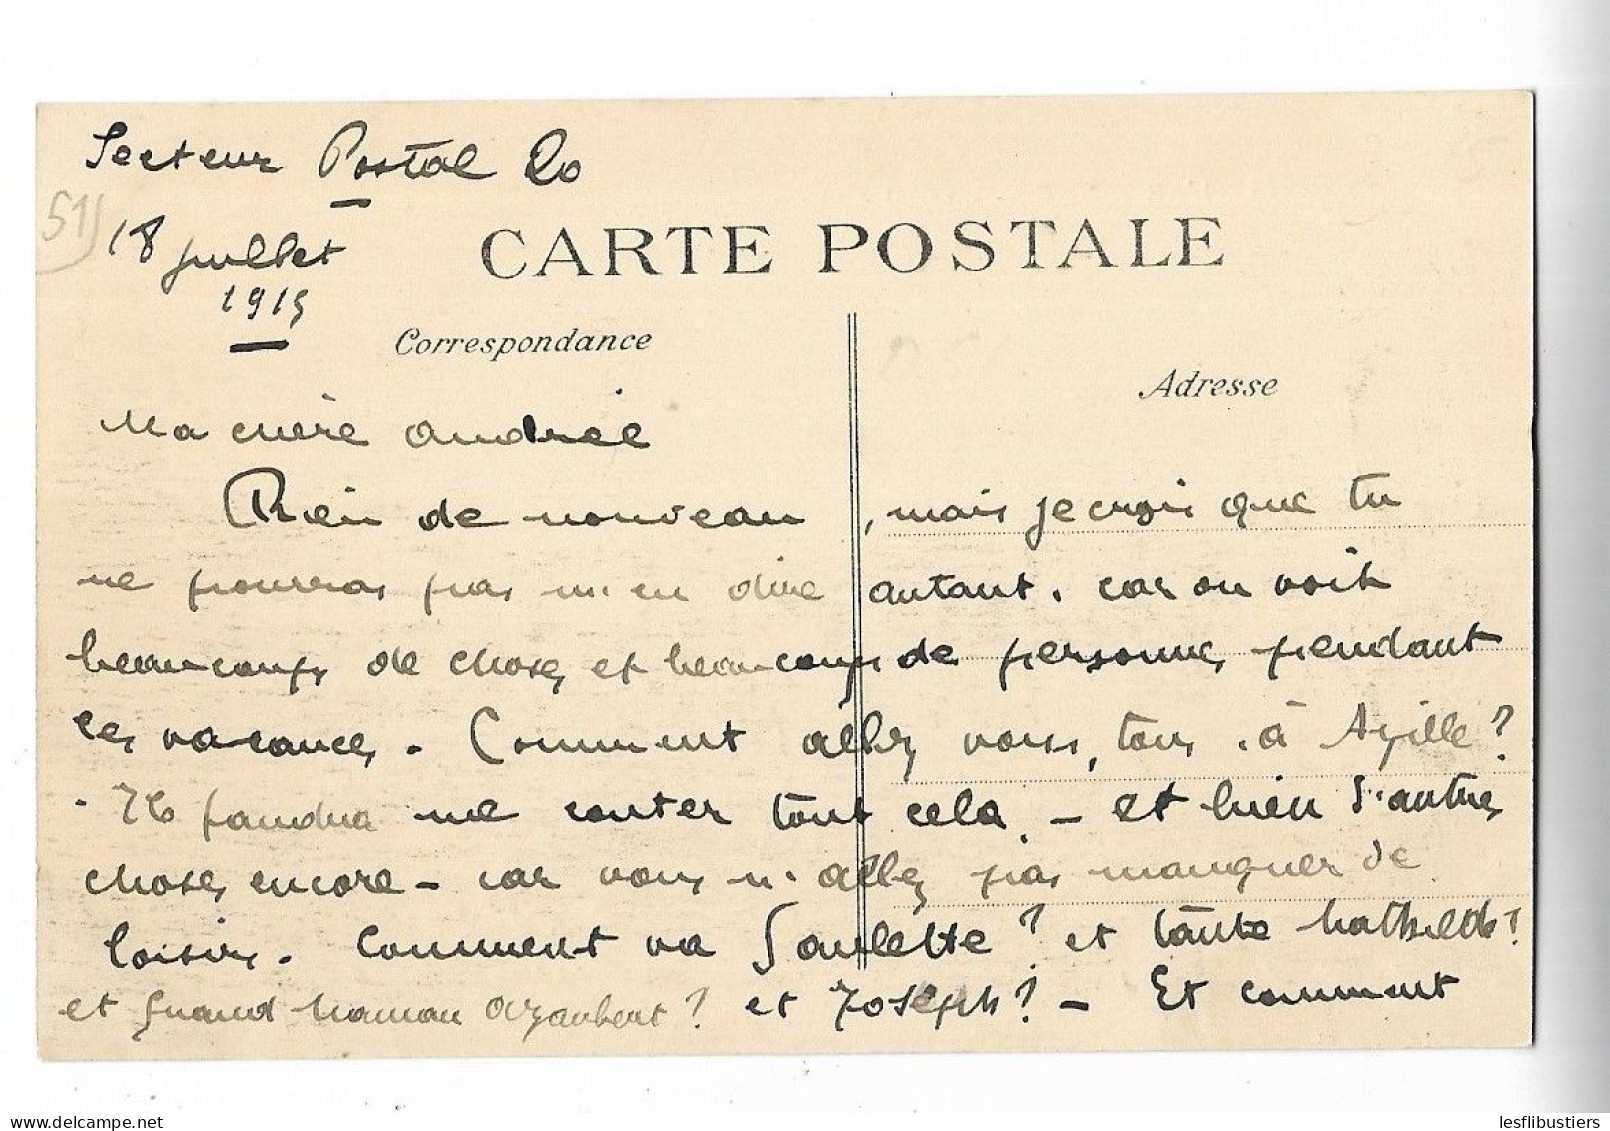 Secteur Postal 20
51
18 juillet
1915
CARTE POSTALE
Correspondance
Adresse
Ma chère Andrée
Rien de nouveau, mais je crois que tu
ne pourras pas m'en dire autant. car on voit
beaucoup de choses et beaucoup de personnes pendant
les vacances. Comment allez vous, tous, à
Il faudra me conter tout cela. - et bien d'autres
choses encore - car vous n'allez pas manquer de
loisirs. Comment va Paulette? et tante Mathilde?
et grand maman ? et Joseph? - Et comment
delcampe.net
lesflibustiers